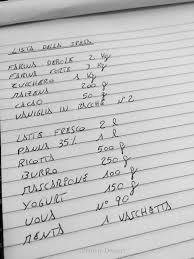 LISTA DELLA SPESA
FARINA DEBOLE 2 Kg
FARINA FORTE 3 Kg
ZUCCHERO 1 Kg
MAIZENA 200 g
CACAO 50 g
VANIGLIA IN BACCHE N° 2
LATTE FRESCO 2 l
PANNA 35% 1 l
RICOTTA 500 g
BURRO 250 g
MASCARPONE 100 g
YOGURT 150 g
UOVA N° 90
MENTA 1 VASCHETTA